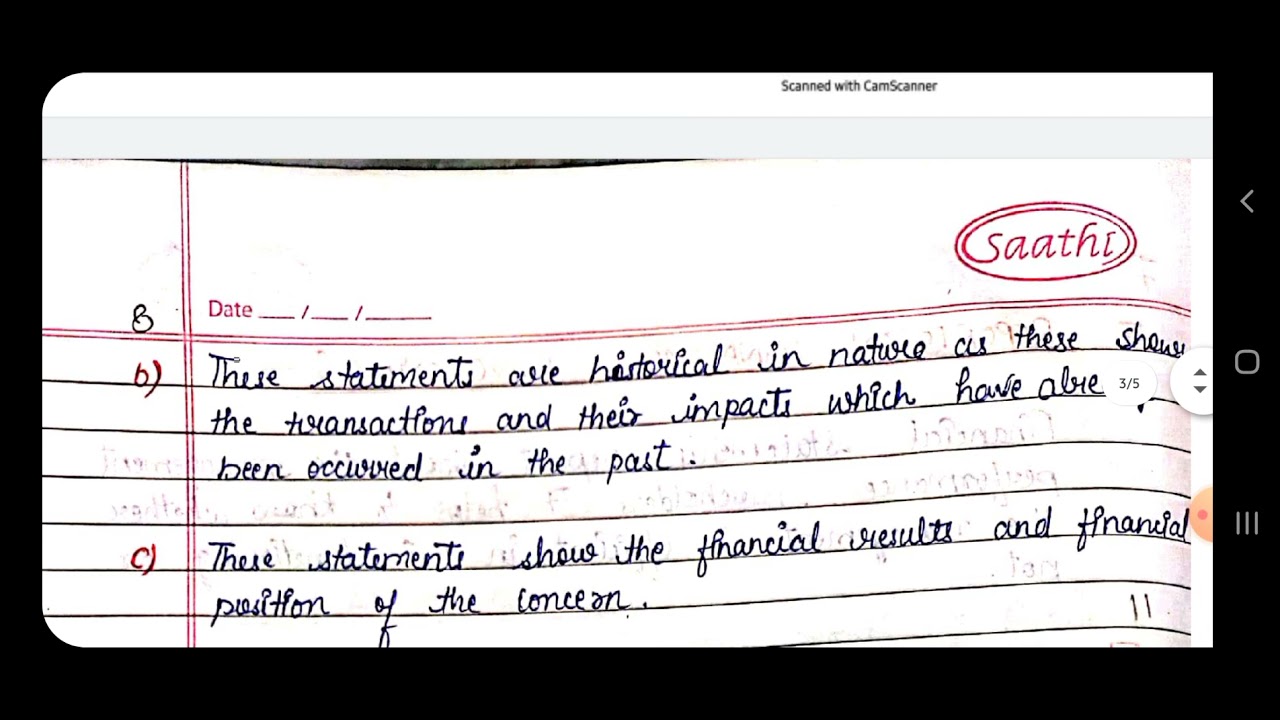 Scanned with CamScanner
Saathi
8 Date __/__/____
b) These statements are historical in nature as these show
the transactions and their impacts which have alre
3/5
been occurred in the past.
c) These statements show the financial results and financial
position of the concern.
11